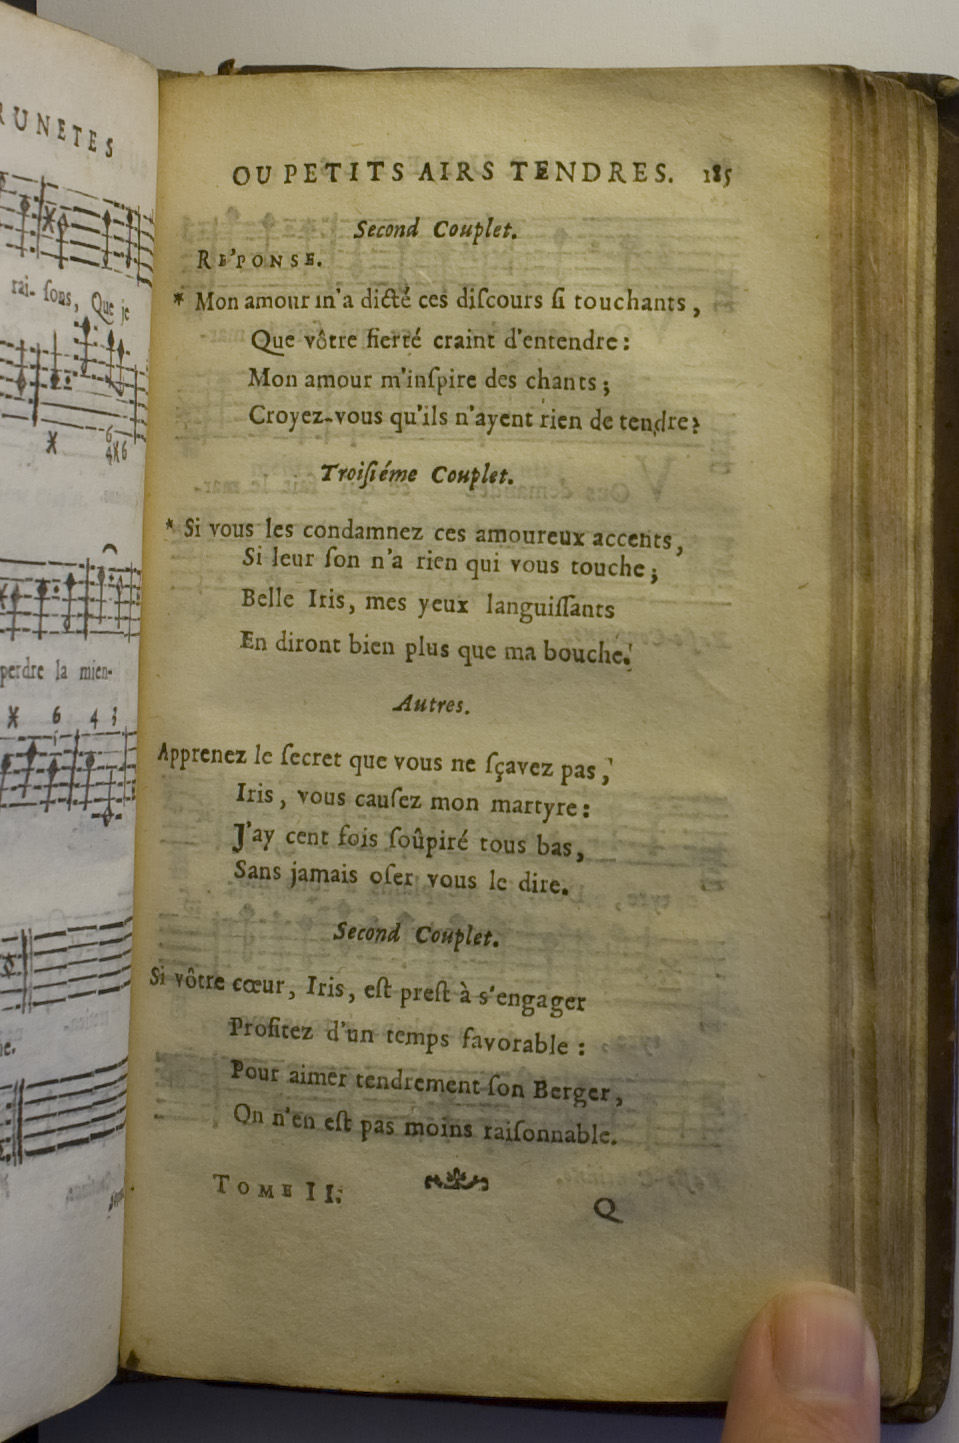 RUNETES
rai- ſons, Que je
6
4X6
perdre la mien-
X 6 4 3
OU PETITS AIRS TENDRES. 185
Second Couplet.
RE'PONSE.
* Mon amour m'a dicté ces diſcours ſi touchants,
Que vôtre fierté craint d'entendre:
Mon amour m'inſpire des chants;
Croyez-vous qu'ils n'ayent rien de tendre?
Troiſiéme Couplet.
* Si vous les condamnez ces amoureux accents,
Si leur ſon n'a rien qui vous touche;
Belle Iris, mes yeux languiſſants
En diront bien plus que ma bouche.
Autres.
Apprenez le ſecret que vous ne ſçavez pas,
Iris, vous cauſez mon martyre:
J'ay cent fois ſoûpiré tous bas,
Sans jamais oſer vous le dire.
Second Couplet.
Si vôtre cœur, Iris, eſt preſt à s'engager
Profitez d'un temps favorable:
Pour aimer tendrement ſon Berger,
On n'en eſt pas moins raiſonnable.
TOME II.
Q